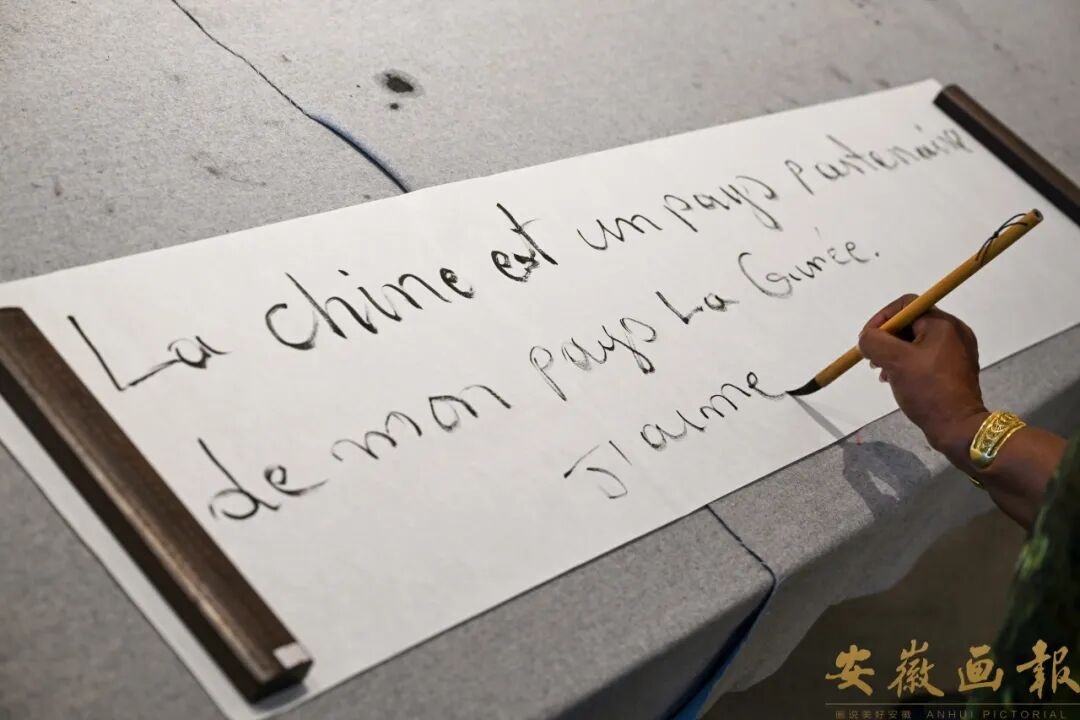 La chine est un pays partenaire
de mon pays La Guinée.
J'aime
安徽画報
画说美好安徽 ANHUI PICTORIAL